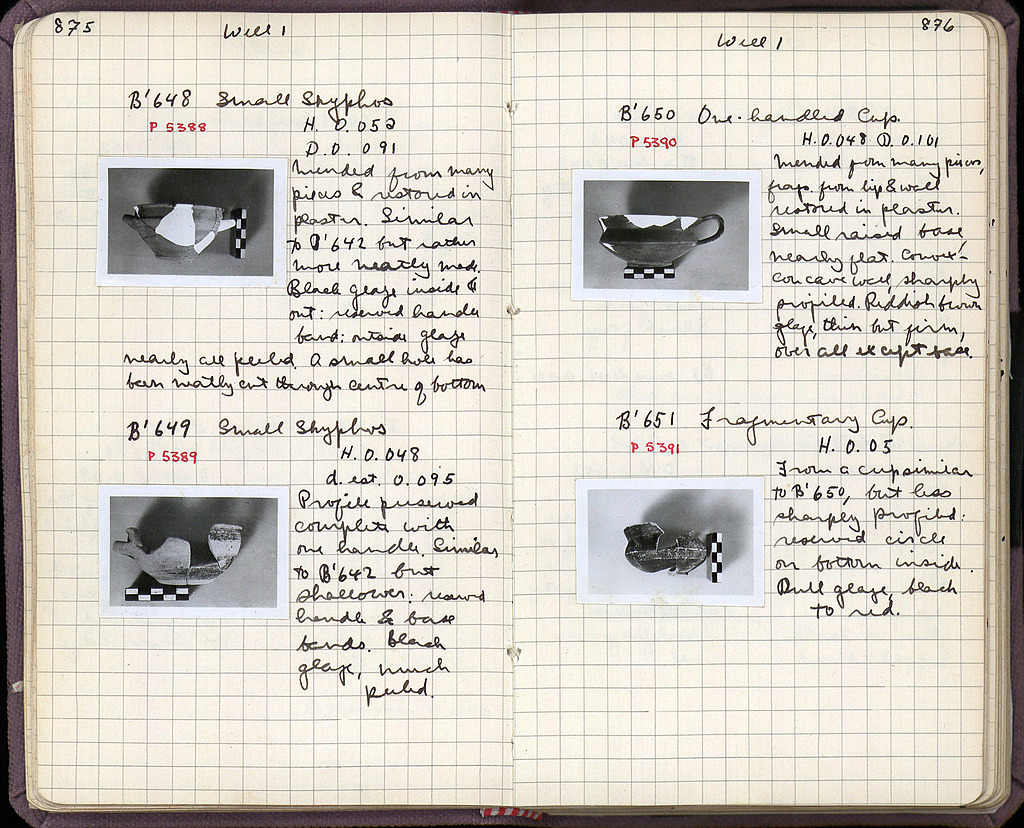 875
Well 1
B'648 Small Skyphos
P 5388
H. 0.052
D. 0.091
Mended from many
pieces & restored in
plaster. Similar
to B'642 but rather
more neatly made.
Black glaze inside &
out: reserved handle
band: outside glaze
nearly all peeled. A small hole has
been neatly cut through centre of bottom
B'649 Small Skyphos
P 5389
H. 0.048
d. est. 0.095
Profile preserved
complete with
one handle. Similar
to B'642 but
shallower: reserved
handle & base
bands. Black
glaze, much
peeled.
876
Well 1
B'650 One-handled Cup.
P 5390
H. 0.048 D. 0.101
Mended from many pieces,
frags. from lip & wall
restored in plaster.
Small raised base,
nearly flat. Convex-
concave wall, sharply
profiled. Reddish brown
glaze, thin but firm,
over all except base.
B'651 Fragmentary Cup.
P 5391
H. 0.05
From a cup similar
to B'650, but less
sharply profiled:
reserved circle
on bottom inside.
Dull glaze, black
to red.